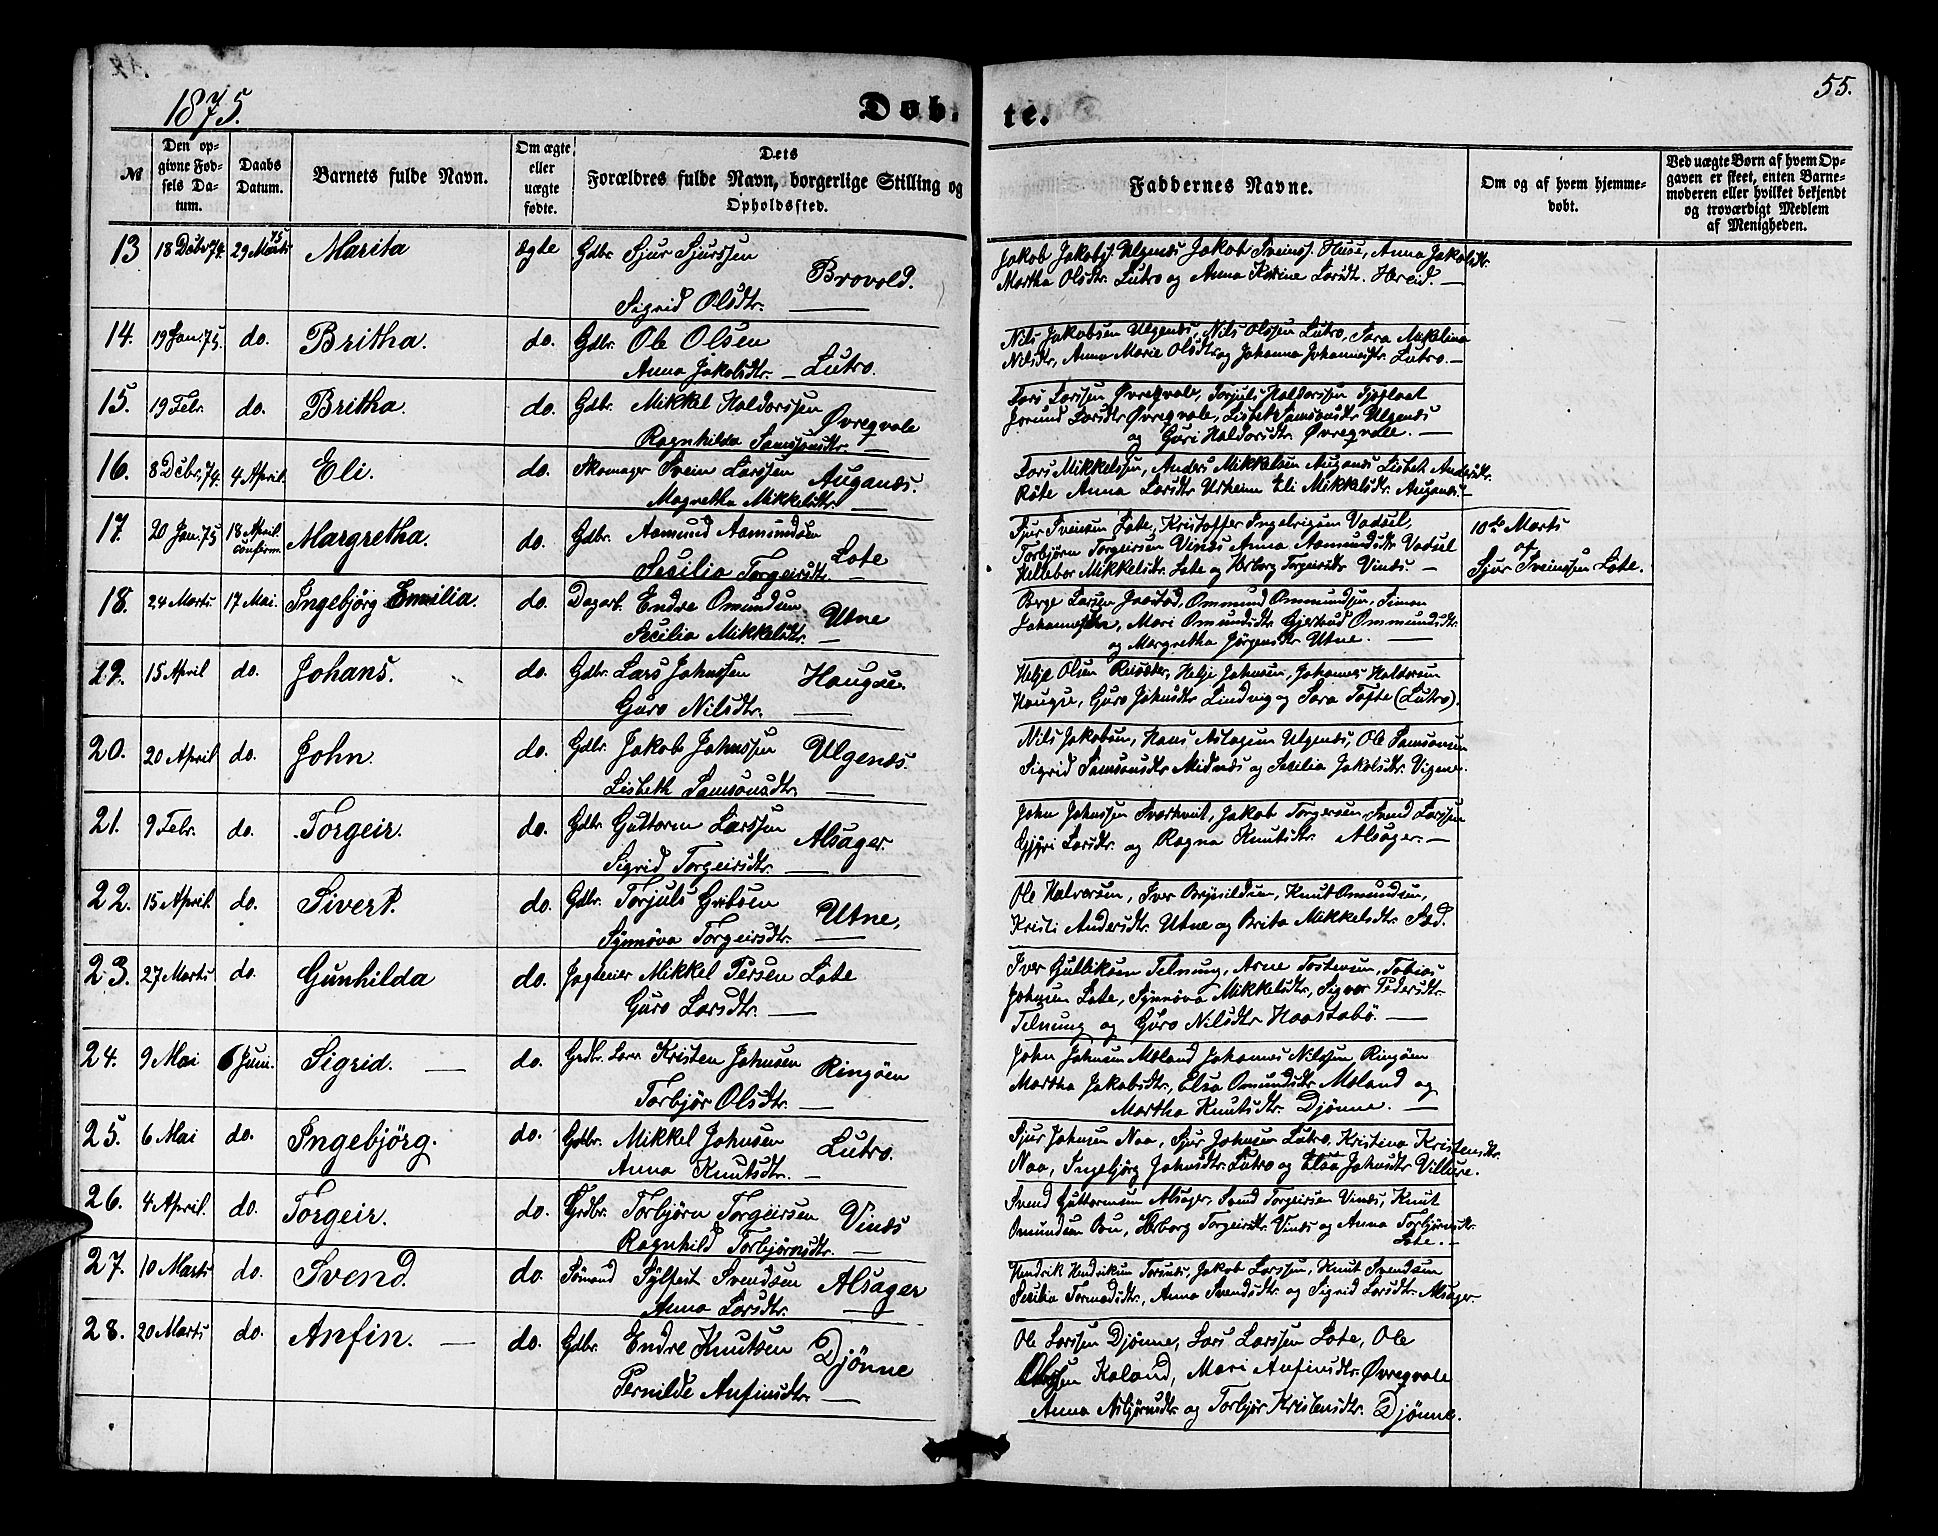 1875.
Døbte.
55.
№
Den opgivne Fødsels Datum.
Daabs Datum.
Barnets fulde Navn.
Om ægte eller uægte fødte.
Dets Forældres fulde Navn, borgerlige Stilling og Opholdssted.
Faddernes Navne.
Om og af hvem hjemmedøbt.
Ved uægte Børn af hvem Opgaven er skeet, enten Barnemoderen eller hvilket bekjendt og troværdigt Medlem af Menigheden.
13 18 Dcbr 74. 29 Marts 75 Marita ægte Gdbr. Sjur Sjurssen
Sigrid Olsdtr. Brovold.
Jakob Jakobs. Ulgenæs Jakob Sveinss. Huse, Anna Jakobsdtr.
Martha Olsdtr. Lutro og Anna Katrine Larsdt. Hereid.
14. 19 Jan. 75. do. Britha. do. Gdbr. Ole Olsen
Anna Jakobsdtr. Lutro.
Nils Jakobsen Ulgenæs, Nils Olssen Lutro, Sara
Nilsdtr, Anna Marie Olsdtr og Johanna Johannesdtr. Lutro.
15. 19 Febr. do. Britha. do. Gdbr. Mikkel Haldorssen
Ragnhilda Samsonsdtr. Øvreqvale
Lars Larssen Øvreqvale, Torjuls Haldorssen
Jorund Larsdtr Øvreqvale, Lisbet Samsonsdtr Ulgenæs
og Guri Haldorsdtr Øvreqvale.
16. 8 Dcbr, 74. 4 April. Eli. do. Skomager Svein Larssen
Magretha Mikkelsdtr. Auganæs.
Lars Mikkelssen, Anders Mikkelsen Auganæs Lisbeth Andersdtr.
Røte Anna Larsdtr Urheim Eli Mikkelsdtr. Auganæs
17. 20 Jan. 75 18 April. confirm. Margretha. do. Gdbr. Aamund Aamundsen
Sesilia Torgeirsdtr. Lote
Sjur Sveinsen Lote, Kristoffer Ingebrigtsen Vadsel,
Torbjørn Torgeirsen Vinæs Anna Aamundsdtr Vadsel
Hellebor Mikkelsdtr. Lote og Herborg Torgeirsdtr Vinæs.
10de Marts
af
Sjur Sveinssen Lote.
18. 24 Marts 17 Mai. Ingebjörg Emilia. do. Dagarb. Endre Omundsen
Secilia Mikkelsdtr. Utne
Berge Larsen Jaastad, Ommund Ommundsen, Simon
Johannessen, Mari Omundsdtr Gjertrud Ommundsdtr.
og Margretha Jørgensdtr Utne.
19. 15 April do. Johans. do. Gdbr. Lars Johnssen
Guro Nilsdtr. Haugse.
Helje Olsen Reisæter, Helje Johnsen, Johannes Haldorsen
Haugse, Guro Johnsdtr Lindvig og Sara Tofte (Lutro).
20. 20 April do. John. do. Gdbr. Jakob Johnssen
Lisbeth Samsonsdtr. Ulgenæs.
Nils Jakobsen, Hans Aslagsen Ulgenæs, Ole Samsonsen
Sigrid Samsonsdtr Midnæs og Secilia Jakobsdtr. Vigenes.
21. 9 Febr. do. Torgeir. do. Gdbr. Guttorm Larssen
Sigrid Torgeirsdtr. Alsager.
John Johnssen Svartveit, Jakob Torgersen, Svend Larssen
Gjøri Larsdtr. og Ragna Knutsdtr. Alsager.
22. 15 April. do. Sivert. do. Gdbr. Torjuls Gribsen
Synnøva Torgeirsdtr. Utne,
Ole Halvorsen, Iver Brynildsen, Knut Omundsen,
Kristi Andersdtr. Utne og Brita Mikkelsdtr. Sæd.
23. 27 Marts do. Gunhilda do. Jægteier Mikkel Persen Lote
Guro Larsdtr.
Iver Gulliksen Telnung, Arne Tostensen, Tobias
Johnsen Lote, Synnøva Mikkelsdtr, Sigvor Pedersdtr.
Telnung og Guro Nilsdtr Haastabø.
24. 9 Mai 6 Juni. Sigrid. do. Grdbr. Kristen Johnsen
Torbjør Olsdtr. Ringøen
John Johnsen Mæland Johannes Nilssen Ringøen
Martha Jakobsdtr., Elsa Omundsdtr Mæland og
Martha Knutsdtr. Djønne.
25. 6 Mai do. Ingebjörg. do. Grdbr. Mikkel Johnsen
Anna Knutsdtr. Lutro.
Sjur Johnsen Naa, Sjur Johnsen Lutro, Kristina Kristensdtr.
Naa, Ingebjörg Johnsdtr. Lutro og Elsa Johnsdtr Villure.
26. 4 April. do. Torgeir. do. Grdbr. Torbjørn Torgeirsen
Ragnhild Torbjørnsdtr. Vinæs
Svend Guttormsen Alsager, Svend Torgeirsen Vinæs, Knut
Omundsen Bru, Herborg Torgeirsdtr. Vinæs og Anna Torbjørnsdtr.
Lote.
27. 10 Marts do. Svend. do. Sømand Sylfest Svendsen
Anna Larsdtr. Alsager
Hendrik Hendriksen Torsnæs, Jakob Larssen, Knut Svendsen
Secilia Tormodsdtr., Anna Svendsdtr. og Sigrid Larsdtr. Alsager.
28. 20 Marts do. Anfin. do. Gdbr. Endre Knutsen
Pernilde Anfinsdtr. Djönne
Ole Larssen Djønne, Lars Larssen Lote, Ole
Olsen Kaland, Mari Anfinsdtr. Øvreqvale
Anna Asbjørnsdtr. og Torbjør Kristensdtr. Djönne.